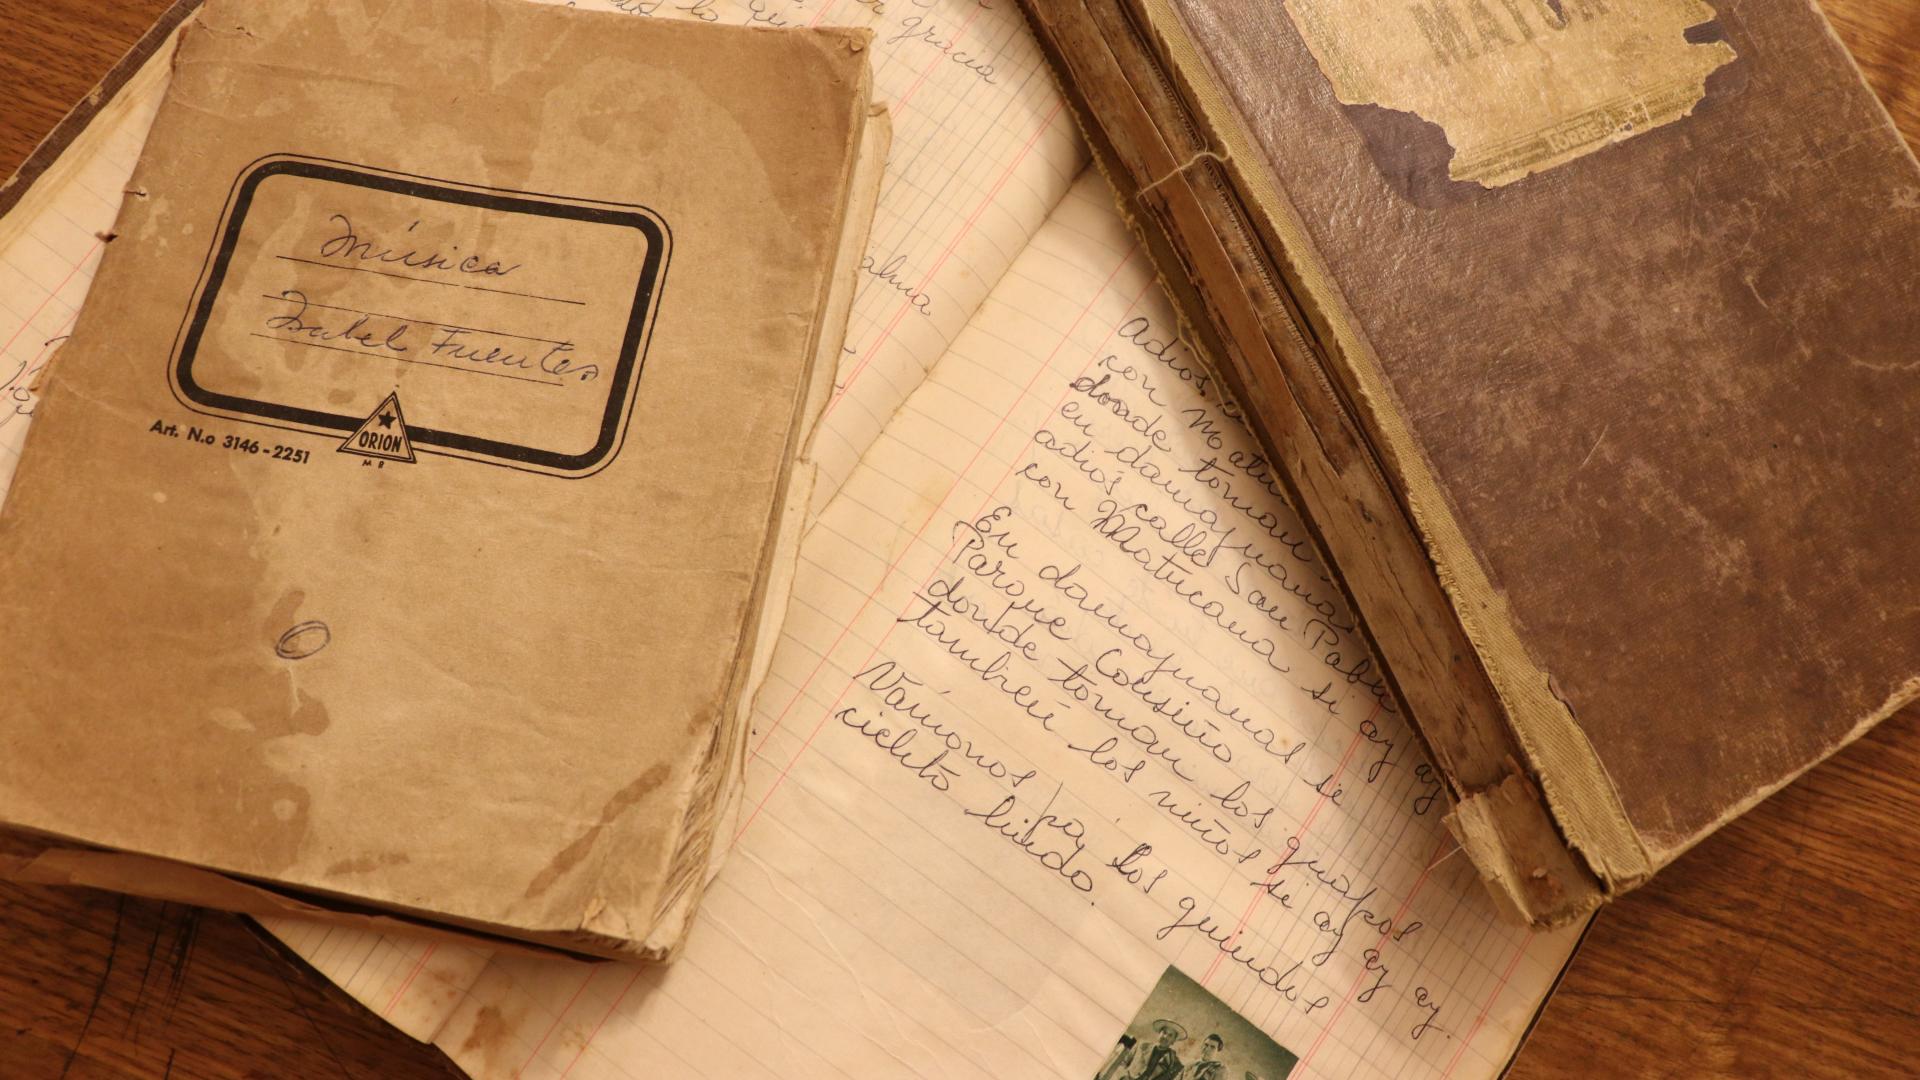 gracia
Música
Isabel Fuentes
Art. N.o 3146-2251
ORION
M R
MAYOR
TORRE
alma
Adiós,
con Matu
donde toman
en damajuanas
adiós calle San Pablo
con Matucana si ay ay
En damajuanas si
Parque Cousiño
donde toman los guapos
también los niños si ay ay ay.
Vámonos pa, los guindos
cielito lindo.